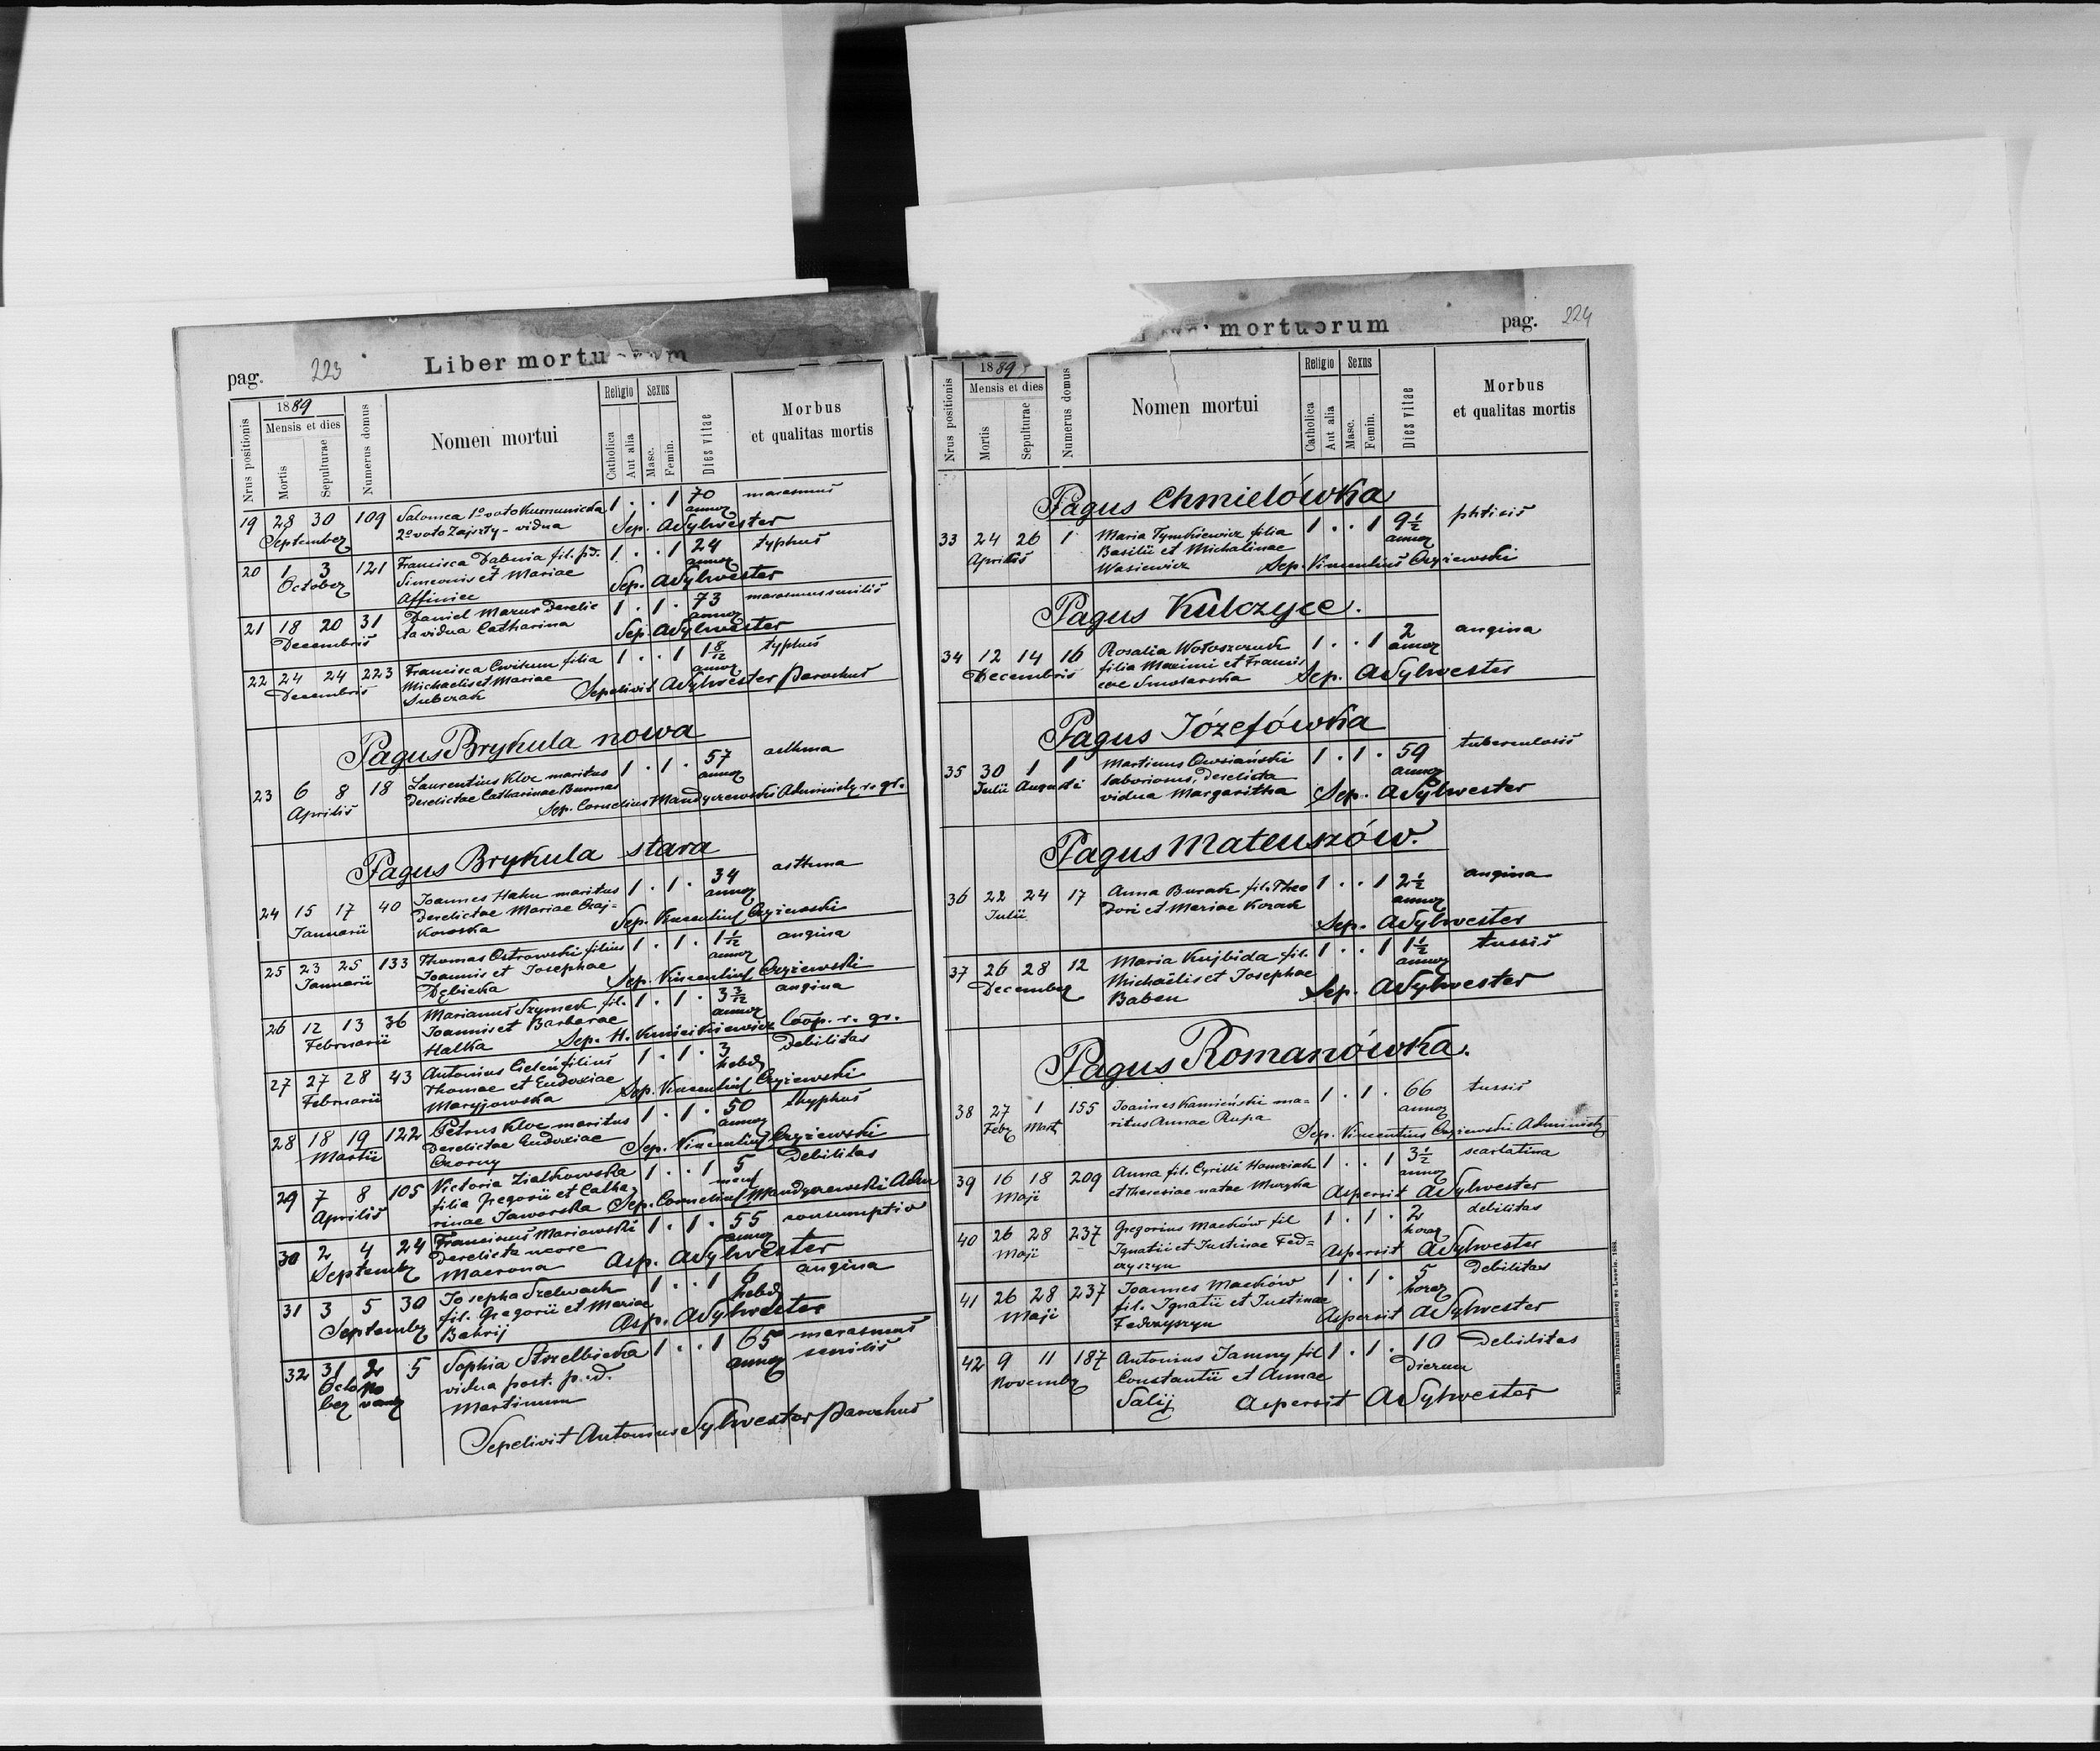 pag. 223
Liber mortu
Nrus positionis
1889
Mensis et dies
Mortis
Sepulturae
Numerus domus
Nomen mortui
Religio
Catholica
Aut alia
Sexus
Masc.
Femin.
Dies vitae
Morbus
et qualitas mortis
19 28 30 109 Salomea 1º voto Kumunicka 1 . . 1 70 marasmus
Septembr 2º voto Zajszty - vidua annor
Sep. ASylwester
20 1 3 121 Francisca Dabinia fil. p.d. 1 . . 1 24 typhus
October Simeonis et Mariae annor
Affiniec Sep. ASylwester
21 18 20 31 Daniel Mazur derelic 1 . 1 . 73 marasmus senilis
Decembris ta vidua Catharina annor
Sep. ASylwester
22 24 24 223 Francisca Cwikun filia 1 . . 1 1 8/12 typhus
Decembris Michaelis et Mariae annor
Suberak Sepelivit ASylwester Parochus
Pagus Brykula nowa
23 6 8 18 Laurentius Kloc maritus 1 . 1 . 57 asthma
Aprilis derelictae Catharinae Burmas annor
Sep. Cornelius Mandyczewski Administr r. gr.
Pagus Brykula stara
24 15 17 40 Joannes Hahn maritus 1 . 1 . 34 asthma
Januarii derelictae Mariae Craj= annor
kowska Sep. Vincentius Czyżewski
25 23 25 133 Thomas Ostrowski filius 1 . 1 . 1 1/12 angina
Januarii Joannis et Josephae annor
Dębicka Sep. Vincentius Czyżewski
26 12 13 36 Marianus Szymek fil. 1 . 1 . 3 3/12 angina
Februarii Joannis et Barbarae annor
Halka Sep. H. Coop. r. gr.
27 27 28 43 Antonius Cisleń filius 1 . 1 . 3 Debilitas
Februarii Thomae et Eudoxiae hebd
Maryjowska Sep. Vincentius Czyżewski
28 18 19 122 Petrus Kloc maritus 1 . 1 . 50 thyphus
Martii Derelictae Eudoxiae annor
Czorny Sep. Vincentius Czyżewski
29 7 8 105 Victoria Ziatkowska 1 . . 1 5 Debilitas
Aprilis filia Gregorii et Catha mens
rinae Jaworska Sep. Cornelius Mandyczewski Adm
30 2 4 24 Franciscus Mariowski 1 . 1 . 55 consumptio
Septembr Derelicta uxore annor
Macrona Asp. ASylwester
31 3 5 30 Josepha Szelwach 1 . . 1 6 angina
Septembr fil. Gregorii et Mariae hebd
Bahrij Asp. ASylwester
32 31 2 5 Sophia Strzelbicka 1 . . 1 65 marasmus
Octo No vidua post. p. d. annor senilis
ber vembr Martinum
Sepelivit Antonius Sylwester Parochus
mortuorum
pag. 224
Nrus positionis
1889
Mensis et dies
Mortis
Sepulturae
Numerus domus
Nomen mortui
Religio
Catholica
Aut alia
Sexus
Masc.
Femin.
Dies vitae
Morbus
et qualitas mortis
Pagus Chmielówka
33 24 26 1 Maria Tymkiewicz filia 1 . . 1 9 1/2 phtisis
Aprilis Basilii et Michalinae annor
Wasiewicz Sep. Vincentius Czyżewski
Pagus Kulczyce.
34 12 14 16 Rosalia Wołoszczuk 1 . . 1 2 angina
Decembris filia Maximi et Francis annor
cae Smolarska Sep. ASylwester
Pagus Józefówka
35 30 1 1 Martinus Owsiański 1 . 1 . 59 tuberculosis
Julii Augusti laboriosus, derelicta annor
vidua Margaritha Sep. ASylwester
Pagus Mateuszów.
36 22 24 17 Anna Burak fil. Theo 1 . . 1 2 1/2 angina
Julii dori et Mariae Kozak annor
Sep. ASylwester
37 26 28 12 Maria Kujbida fil. 1 . . 1 1 1/2 tussis
Decembr Michaëlis et Josephae annor
Baben Sep. ASylwester
Pagus Romanówka.
38 27 1 155 Joannes Kamieński ma= 1 . 1 . 66 tussis
Febr Mart ritus Annae Rupa annor
Sep. Vincentius Czyżewski Administr
39 16 18 209 Anna fil. Cyrilli Hawziak 1 . . 1 3 1/2 scarlatina
Maji et Theresiae natae Muzyka annor
Aspersit ASylwester
40 26 28 237 Gregorius Maćków fil 1 . 1 . 2 debilitas
Maji Ignatii et Justinae Fed= horar
czyszyn Aspersit ASylwester
41 26 28 237 Joannes Maćków 1 . 1 . 5 Debilitas
Maji fil. Ignatii et Justinae horar
Fedczyszyn Aspersit ASylwester
42 9 11 187 Antonius Jamny fil 1 . 1 . 10 Debilitas
Novembr Constantii et Annae Dierum
Salij Aspersit ASylwester
Nakładem Drukarni Ludowej we Lwowie. 1888.